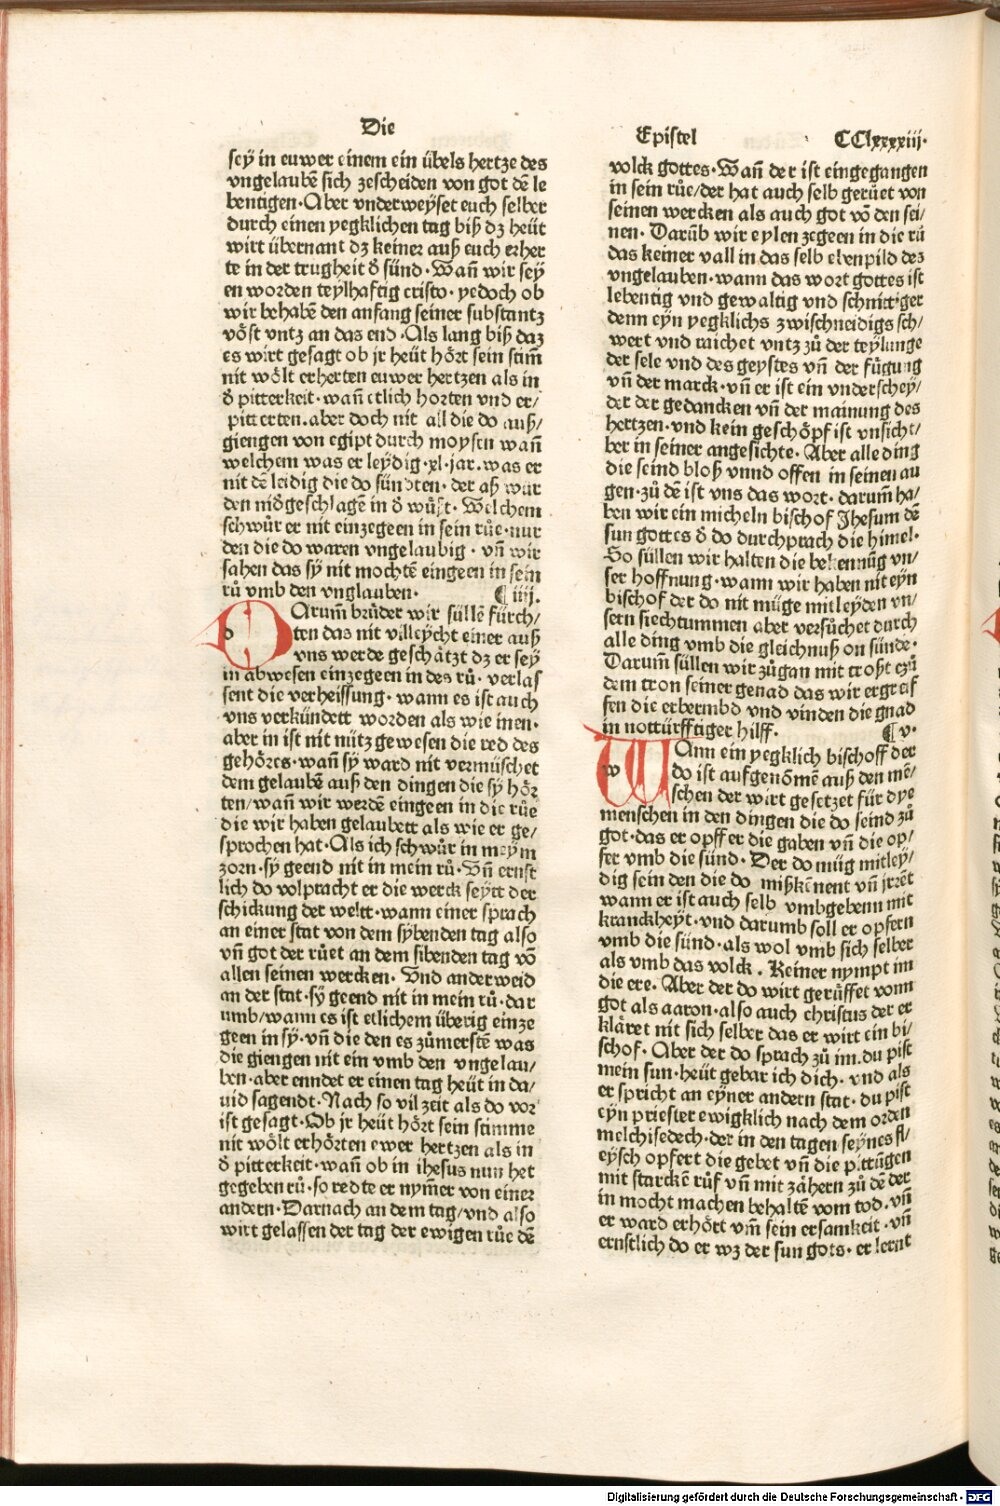 Die
Epistel CClxxxxiii.
sey in euwer einem ein übels hertze des
vngelaubē sich zescheiden von got dē le
bentigen·Aber vnderweyset euch selber
durch einen yegklichen tag biß dz heüt
wirt übernant dz keiner auß euch erher
te in der trugheit ð sünd·Wañ wir sey
en worden teylhaftig cristo·yedoch ob
wir behabē den anfang seiner substantz
vöst vntz an das end·Als lang biß daz
es wirt gesagt ob jr heüt hört sein stim̄
nit wölt erherten euwer hertzen als in
ð pitterkeit·wañ etlich horten vnd er/
pitterten.aber doch nit all die do auß/
giengen von egipt durch moysen wañ
welchem was er leydig·xl·jar.was er
nit dē leidig die do sündten·der aß wur
den nidgeschlagē in ð wüst·Welchem
schwůr er nit einzegeen in sein růe·nur
den die do waren vngelaubig·vñ wir
sahen das sy nit mochtē eingeen in sein
rů vmb den vnglauben· ¶iiij.
d Arum̄ brůder wir süllē fürch/
ten das nit villeycht einer auß
vns werde geschätzt dz er sey
in abwesen einzegeen in des rů·verlas
sent die verheissung·wann es ist auch
vns verkündett worden als wie inen·
aber in ist nit nütz gewesen die red des
gehöres·wañ sy ward nit vermüschet
dem gelaubē auß den dingen die sy hör
ten/wañ wir werdē eingeen in die růe
die wir haben gelaubett als wie er ge/
sprochen hat·Als ich schwůr in meym
zorn·sy geend nit in mein rů·Vñ ernst
lich do volpracht er die werck seytt der
schickung der weltt·wann einer sprach
an einer stat von dem sybenden tag also
vñ got der růet an dem sibenden tag vō
allen seinen wercken·Vnd anderweid
an der stat·sy geend nit in mein rů·dar
umb/wann es ist etlichem überig einze
geen in sy·vñ die den es zůmerstē was
die giengen nit ein vmb den vngelau/
ben·aber enndet er einen tag heüt in da/
uid sagendt·Nach so vil zeit als do vor
ist gesagt·Ob jr heüt hört sein stimme
nit wölt erhörten ewer hertzen als in
ð pitterkeit·wañ ob in ihesus nun het
gegeben rů·so redte er nym̄er von einer
andern·Darnach an dem tag/vnd also
wirt gelassen der tag der ewigen růe dē
volck gottes·Wañ der ist eingegangen
in sein růe/der hat auch selb gerůet von
seinen wercken als auch got vō den sei/
nen·Darūb wir eylen zegeen in die rů
das keiner vall in das selb ebenpild des
vngelauben·wann das wort gottes ist
lebentig vnd gewaltig vnd schnittiger
denn eyn yegklichs zwischneidigs sch/
wert vnd raichet vntz zů der teylunge
der sele vnd des geystes vñ der fügung
vñ der marck·vñ er ist ein vnderschey/
der der gedancken vñ der mainung des
hertzen·vnd kein geschöpf ist vnsicht/
ber in seiner angesichte·Aber alle ding
die seind bloß vnnd offen in seinen au
gen·zů dē ist vns das wort·darum̄ ha/
ben wir ein micheln bischof Jhesum dē
sun gottes ð do durchprach die himel·
So süllen wir halten die bekennūg vn/
ser hoffnung·wann wir haben nit eyn
bischof der do nit müge mitleyden vn/
sern siechtummen aber versůchet durch
alle ding vmb die gleichnuß on sünde·
Darum̄ süllen wir zůgan mit troßt czů
dem tron seiner genad das wir ergreif
fen die erbermbd vnd vinden die gnad
in nottürfftiger hilff· ¶v·
w Ann ein yegklich bischoff der
do ist aufgenōmē auß den mē/
schen der wirt gesetzet für dye
menschen in den dingen die do seind zů
got·das er opffer die gaben vñ die op/
fer vmb die sünd·Der do müg mitley/
dig sein den die do mißkēnent vñ jrrēt
wann er ist auch selb vmbgebenn mit
kranckheyt·vnd darumb soll er opfern
vmb die sünd·als wol vmb sich selber
als vmb das volck.Keiner nympt im
die ere.Aber der do wirt gerüffet vonn
got als aaron·also auch christus der er
kläret nit sich selber das er wirt ein bi/
schof·Aber der do sprach zů im.du pist
mein sun·heüt gebar ich dich·vnd als
er spricht an eyner andern stat·du pist
eyn priester ewigklich nach dem orden
melchisedech·der in den tagen seynes fl/
eysch opfert die gebet vñ die pittūgen
mit starckē růf vñ mit zähern zů dē der
in mocht machen behaltē vom tod.vñ
er ward erhört vm̄ sein ersamkeit·vñ
ernstlich do er wz der sun gots·er lernt
Digitalisierung gefördert durch die Deutsche Forschungsgemeinschaft - DFG